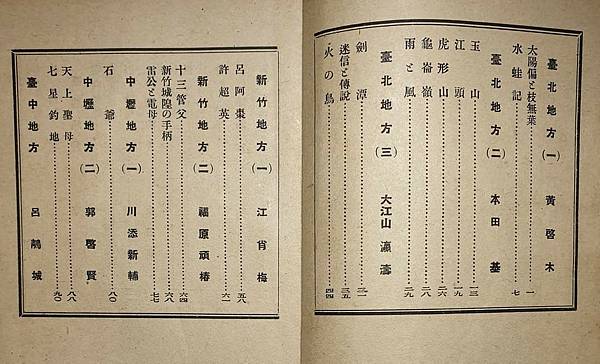 臺北地方（一） 黃啓木
太陽偏と枝無葉……一
水蛙記……七
臺北地方（二） 本田基
玉山……一三
江頭……一九
虎形山……二六
龜崙嶺……二八
雨と風……二九
臺北地方（三） 大江山瀛濤
劍潭……三一
迷信と傳說……三五
火の鳥……四四
新竹地方（一） 江肖梅
呂阿棗……五八
許超英……六一
新竹地方（二） 福原頑椿
十三管父……六四
新竹城隍の手柄……六八
雷公と電母……七七
中壢地方（一） 川添新輔
石爺……八〇
中壢地方（二） 郭啓賢
天上聖母……八八
七星釣地……九〇
臺中地方 呂鷮城